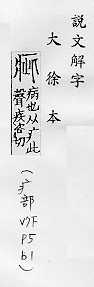 說文解字
大徐本
疵
病也从疒此
聲疾咨切
(疒部 V7下 P5 b1)